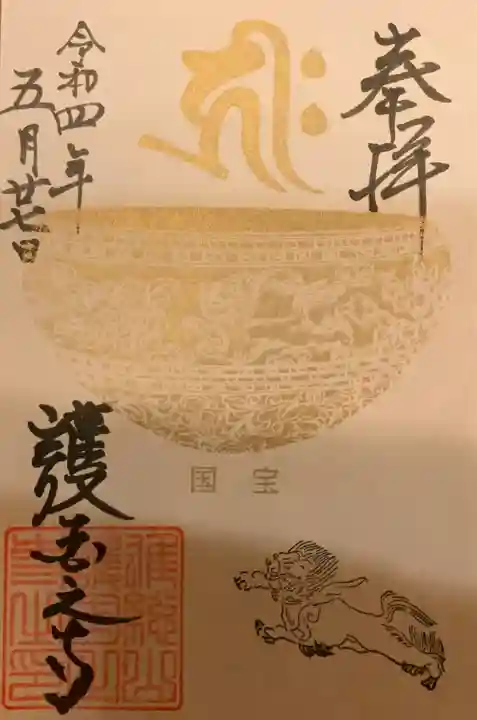 奉拝
令和四年
五月廿七日
国宝
護国之寺